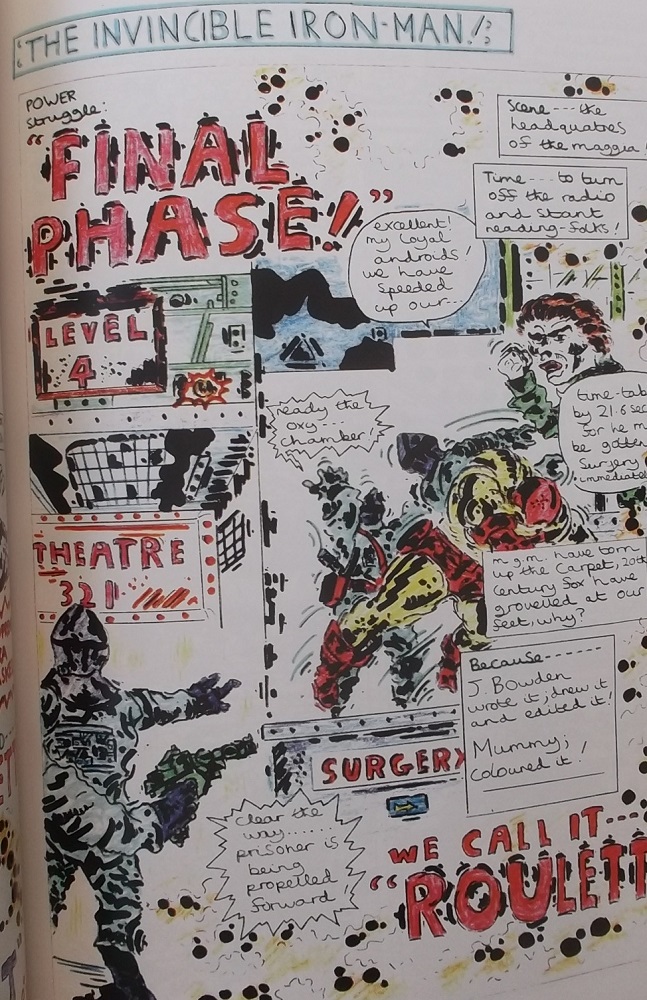 THE INVINCIBLE IRON-MAN!?
POWER
struggle:
"FINAL
PHASE!"
Scene---the
headquatres
of the maggia!
Time----to turn
off the radio
and start
reading-folks!
excellent!
my loyal
androids!
we have
speeded
up our---
LEVEL
4
ready the
oxy----
chamber!
time-tab
by 21.6 sec
for he m
be gotten
Surgery
immediatel
THEATRE
321
m.g.m. have torn
up the Carpet, 20th
Century fox have
grovelled at our
feet, why?
Because-------
J. Bowden
wrote it; drew it
and edited it!
Mummy;
coloured it!
SURGERY
clear the
way......
prisoner is
being
propelled
forward
WE CALL IT---
"ROULETT